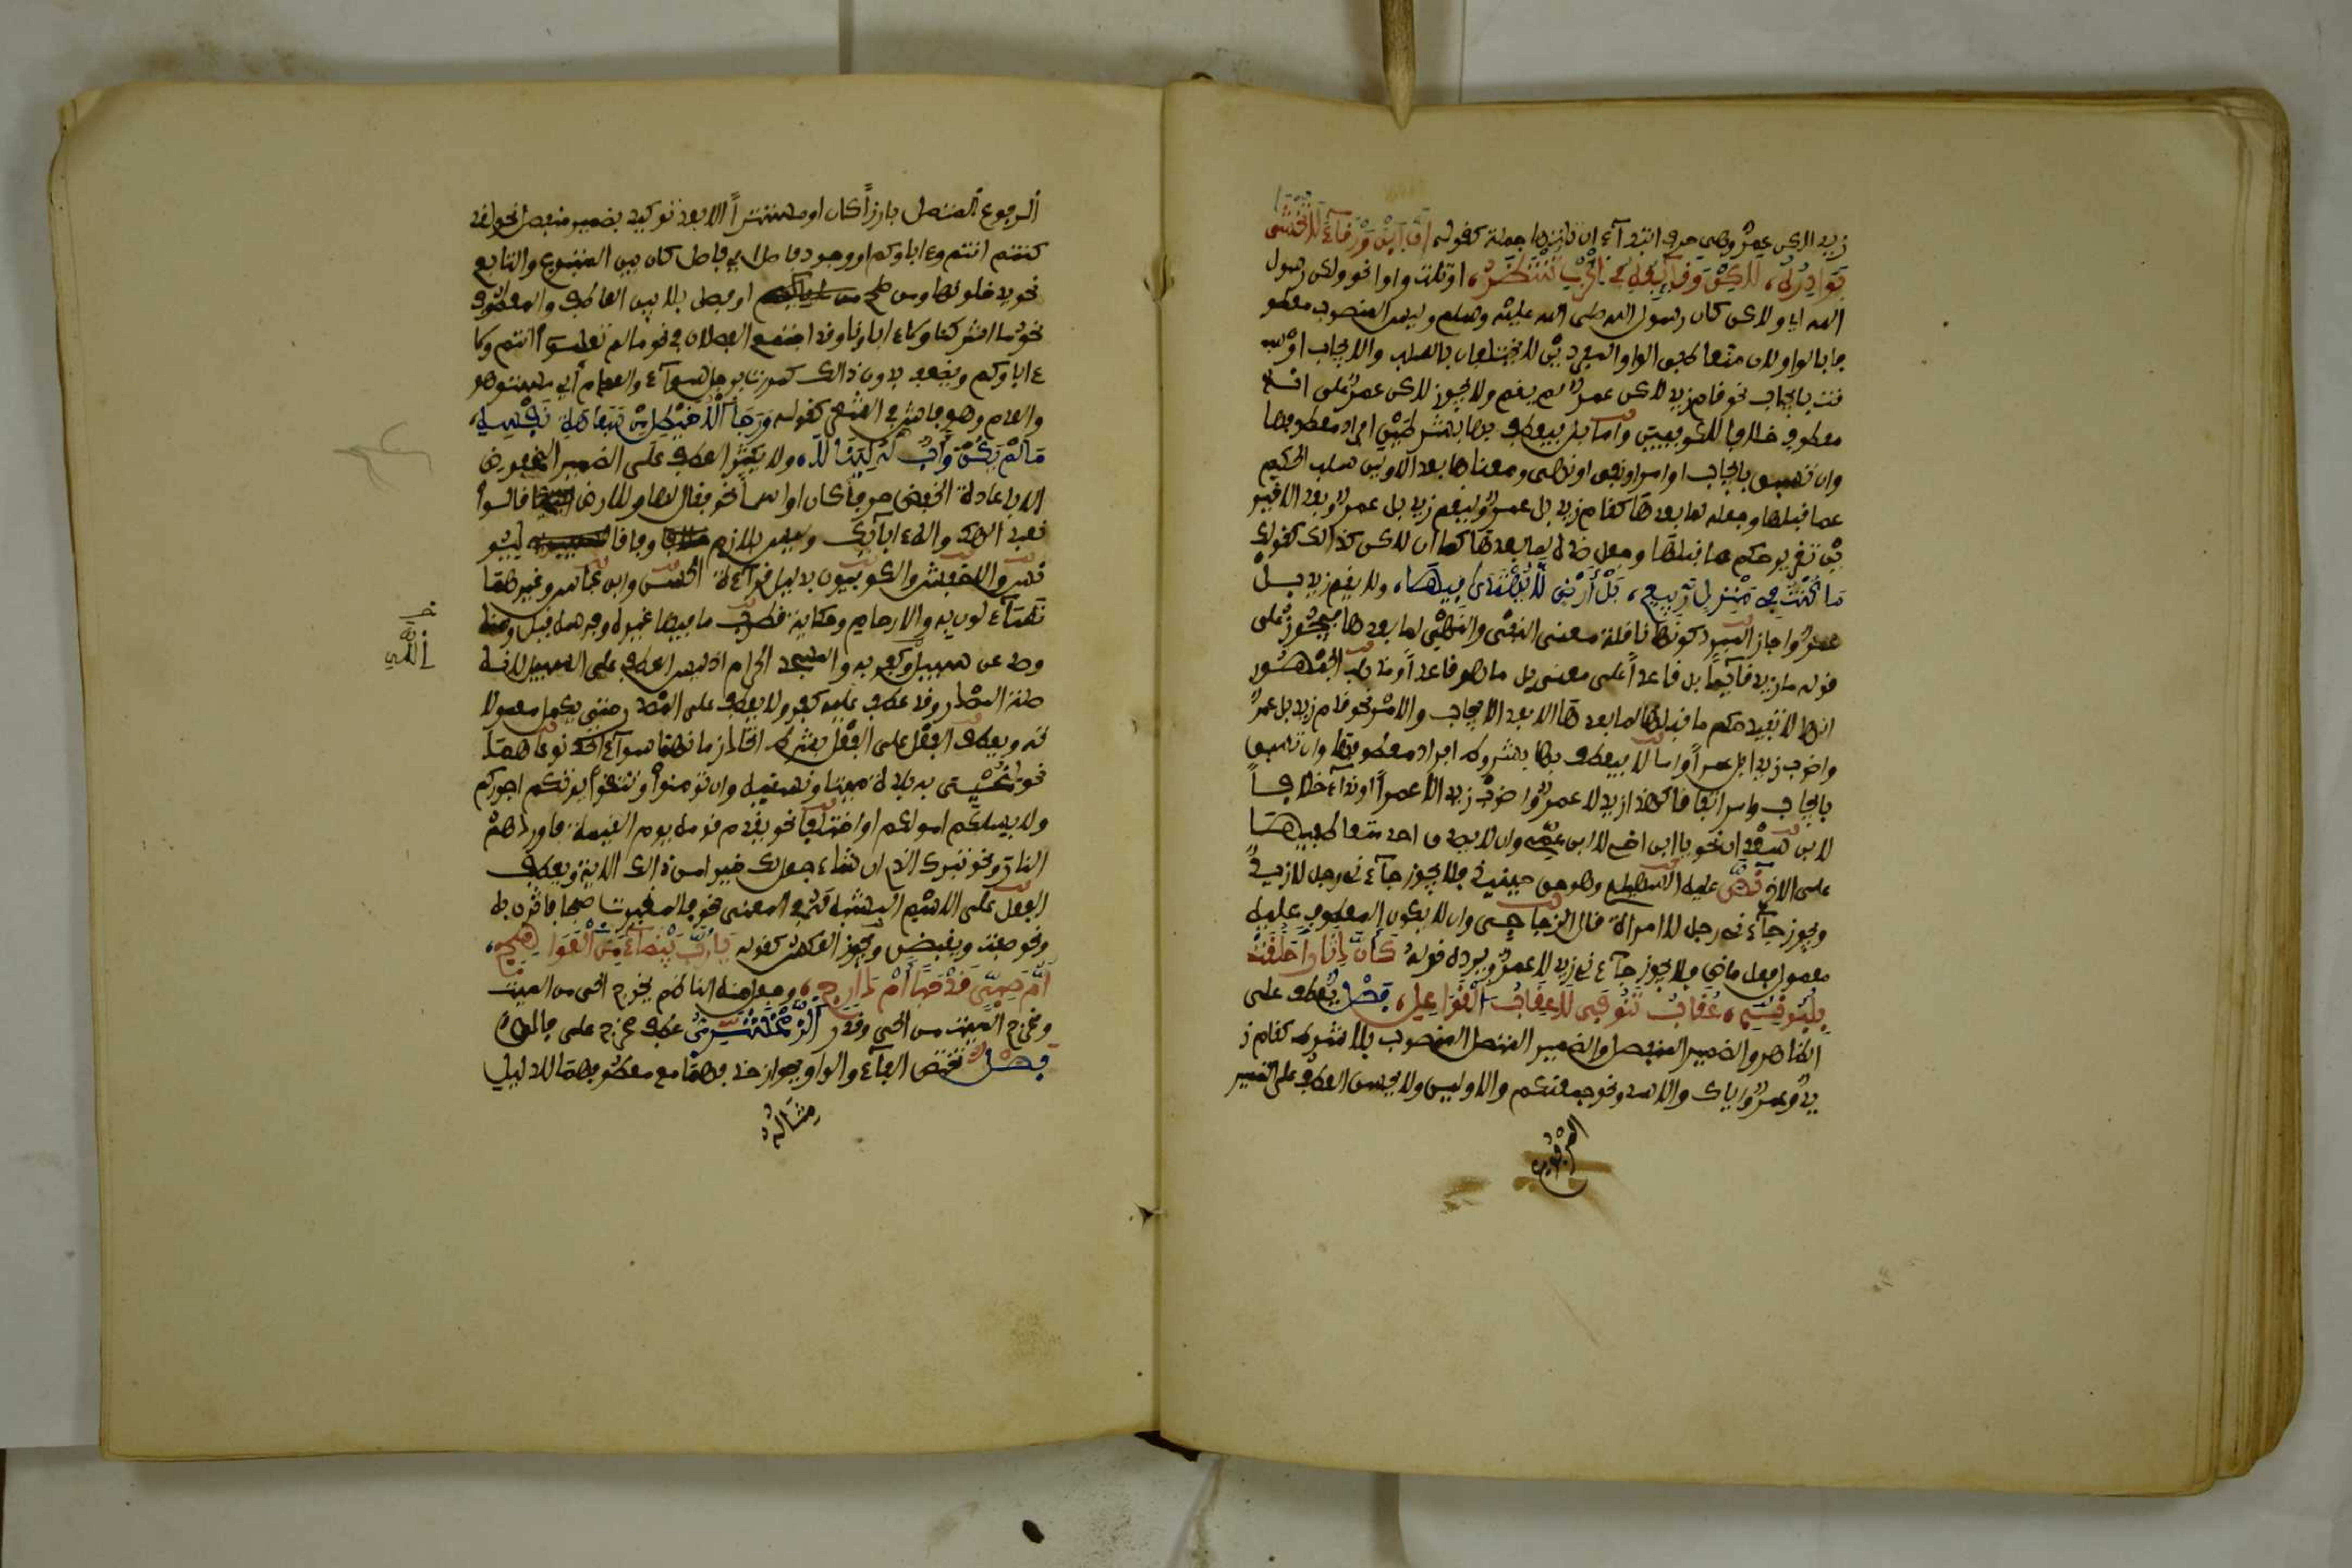 زيد لاكن عمرو وهي حرف ابتدآء ان تلتها جملة كقوله ان ابن ورقآء لا تخشى
بوادره، لاكن وقآئعه في الحرب تنتظر، او تلت واوا نحو ولكن رسول
الله اي ولاكن كان رسول الله صلى الله عليه وسلم وليس المنصوب معطو
فا بالواو لان متعاطفي الواو المفردين لا يختلفان بالسلب والايجاب او سبـ
قت بايجاب نحو قام زيد لاكن عمرو لم يقم ولا يجوز لاكن عمرو على انه
معطوف خلافا للكوفيين واما بل فيعطف بها بشرطين افراد معطوفها
وان تسبق بايجاب او امر او نفي او نهي ومعناها بعد الاولين سلب الحكم
عما قبلها وجعله لما بعدها كقام زيد بل عمرو وليقم زيد بل عمرو وبعد الاخير
ين تقرير حكم ما قبلها وجعل ضده لما بعدها كما ان لاكن كذالك كقولك
ما كنت في منزل ربيع، بل أرض لا يهتدى فيها، ولا يقم زيد بل
عمرو واجاز المبرد كونها ناقلة معنى النفي والنهي لما بعدها فيجوز على
قوله ما زيد قآئما بل قاعدا على معنى بل ما هو قاعدا ومذهب الجمهور
انها لا تفيد حكم ما قبلها لما بعدها الا بعد الايجاب والامر نحو قام زيد بل عمرو
واضرب زيدا بل عمرا واما لا فيعطف بها بشروط افراد معطوفها وان تسبق
بايجاب او امر اتفاقا كهذا زيد لا عمرو واضرب زيدا لا عمرا او ندآء خلافا
لابن سعدان نحو يا ابن اخي لا ابن عمي وان لا يصدق احد متعاطفيها
على الاخر نص عليه السهيلي وهو حق حينئذ فلا يجوز جآءني رجل لا زيد
ويجوز جآءني رجل لا امرأة قال الزجاجي وان لا يكون المعطوف عليه
معمول فعل ماض فلا يجوز جآءني زيد لا عمرو ويرده قوله كأن دثارا حلقت
بلبونه، عقاب تنوفى لا عقاب القواعل، فصل يعطف على
الظاهر والضمير المنفصل والضمير المتصل المنصوب بلا شرط كقام ز
يد وعمرو واياك والاسد ونحو جمعنكم والاولين ولا يحسن العطف على الضمير
المرفوع
المرفوع المتصل بارزا كان او مستترا الا بعد توكيده بضمير منفصل نحو لقد
كنتم انتم وءاباوكم او وجود فاصل اي فاصل كان بين المتبوع والتابع
نحو يدخلونها ومن صلح او فصل بلا بين العاطف والمعطوف
نحو ما اشركنا ولا ءاباونا وقد اجتمع الفصلان في نحو ما لم تعلموا انتم ولا
ءاباوكم ويضعف بدون ذالك كمررت برجل سوآء والعدم أي مستو هو
والعدم وهو فاش في الشعر كقوله ورجا الأخيطل من سفاهة نفسه،
ما لم يكن وأب له لينالا، ولا يكثر العطف على الضمير المخفوض
الا باعادة الخافض حرفا كان او اسما نحو فقال لها وللارض قالوا
نعبد الهك واله ءابآئك وليس بلازم وفاقا ليو
نس والاخفش والكوفيين بدليل قرآءة الحسن وابن عباس وغيرهما
تسآءلون به والارحام وحكاية قطرب ما فيها غيره وفرسه قيل ومنه
وصد عن سبيل الله وكفر به والمسجد الحرام اذ ليس العطف على السبيل لانه
صلة المصدر وقد عطف عليه كفر ولا يعطف على المصدر حتى تكمل معمولا
ته ويعطف الفعل على الفعل بشرط اتحاد زمانهما سوآء اتحد نوعاهما
نحو لنحيي به بلدة ميتا ونسقيه وان تومنوا وتتقوا يوتكم اجوركم
ولا يسئلكم اموالكم او اختلفا نحو يقدم قومه يوم القيمة فاوردهم
النار ونحو تبرك الذي ان شاء جعل لك خيرا من ذالك الاية ويعطف
الفعل على الاسم المشبه له في المعنى نحو فالمغيرات صبحا فاثرن به
ونحو صفت ويقبضن ويجوز العكس كقوله يا رب بيضآء من العواهج،
أم صبي قد حبا أم دارج، وجعل منه الناظم يخرج الحي من الميت
ومخرج الميت من الحي وقدر الزمخشري عطف مخرج على فالق
فصل تختص الفآء والواو بجواز حذفهما مع معطوفهما لدليل
مثاله